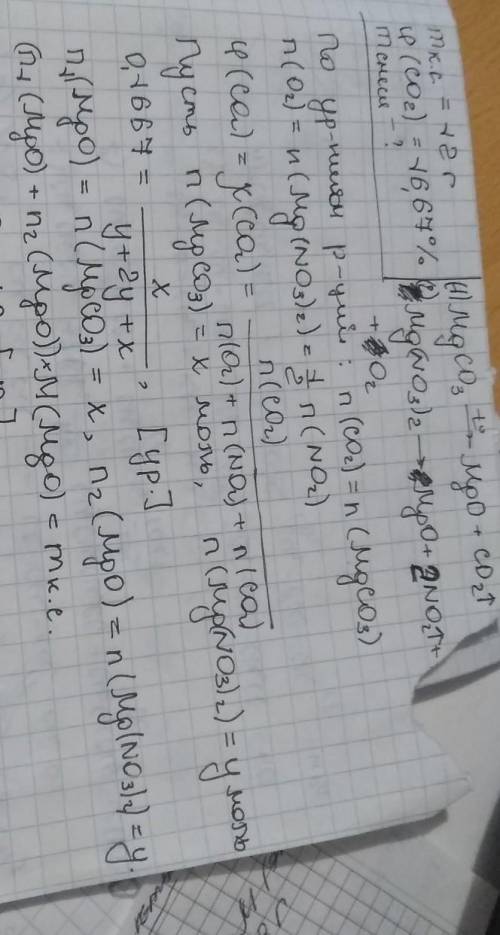 mк.с = 12 г
φ(CO₂) = 16,67%
mсмеси - ?
1) MgCO₃ →t° MgO + CO₂↑
2) Mg(NO₃)₂ → MgO + 2NO₂↑ +
+ O₂
По ур-ниям р-ций: n(CO₂) = n(MgCO₃)
n(O₂) = n(Mg(NO₃)₂) = 1/2 n(NO₂)
φ(CO₂) = χ(CO₂) = n(CO₂) / n(O₂) + n(NO₂) + n(CO₂)
Пусть n(MgCO₃) = x моль,
n(Mg(NO₃)₂) = y моль
0,1667 = x / y + 2y + x, [ур.]
n₁(MgO) = n(MgCO₃) = x, n₂(MgO) = n(Mg(NO₃)₂) = y.
(n₁(MgO) + n₂(MgO))×M(MgO) = mк.с.